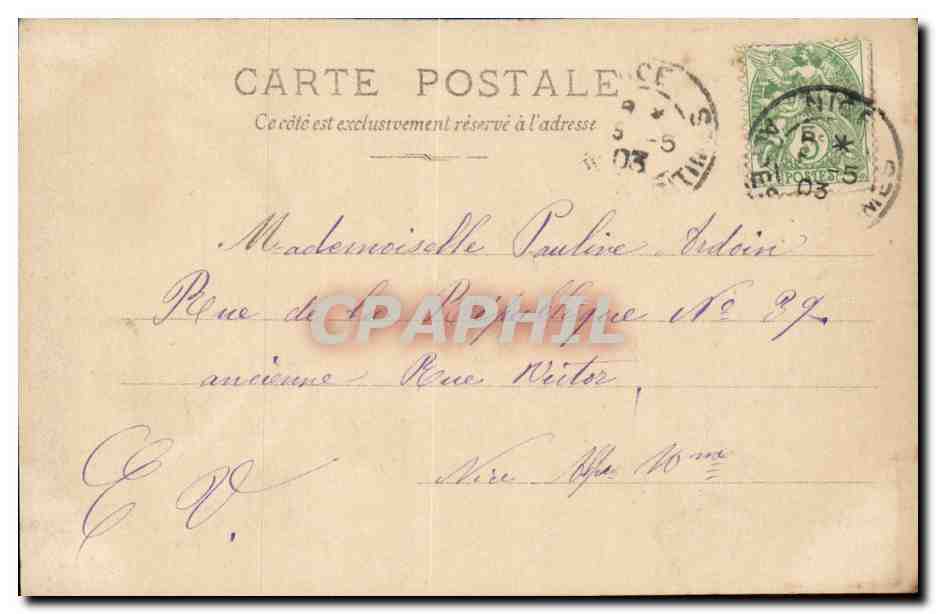 CARTE POSTALE
Ce côté est exclusivement réservé à l'adresse
NICE
5 -5
03
NICE
5 *
-5
03
5c
POSTES
Mademoiselle Pauline Ardoin
Rue de la République No 39
ancienne Rue Victor,
Nice Alpes Mmes
E V.
CPAPHIL